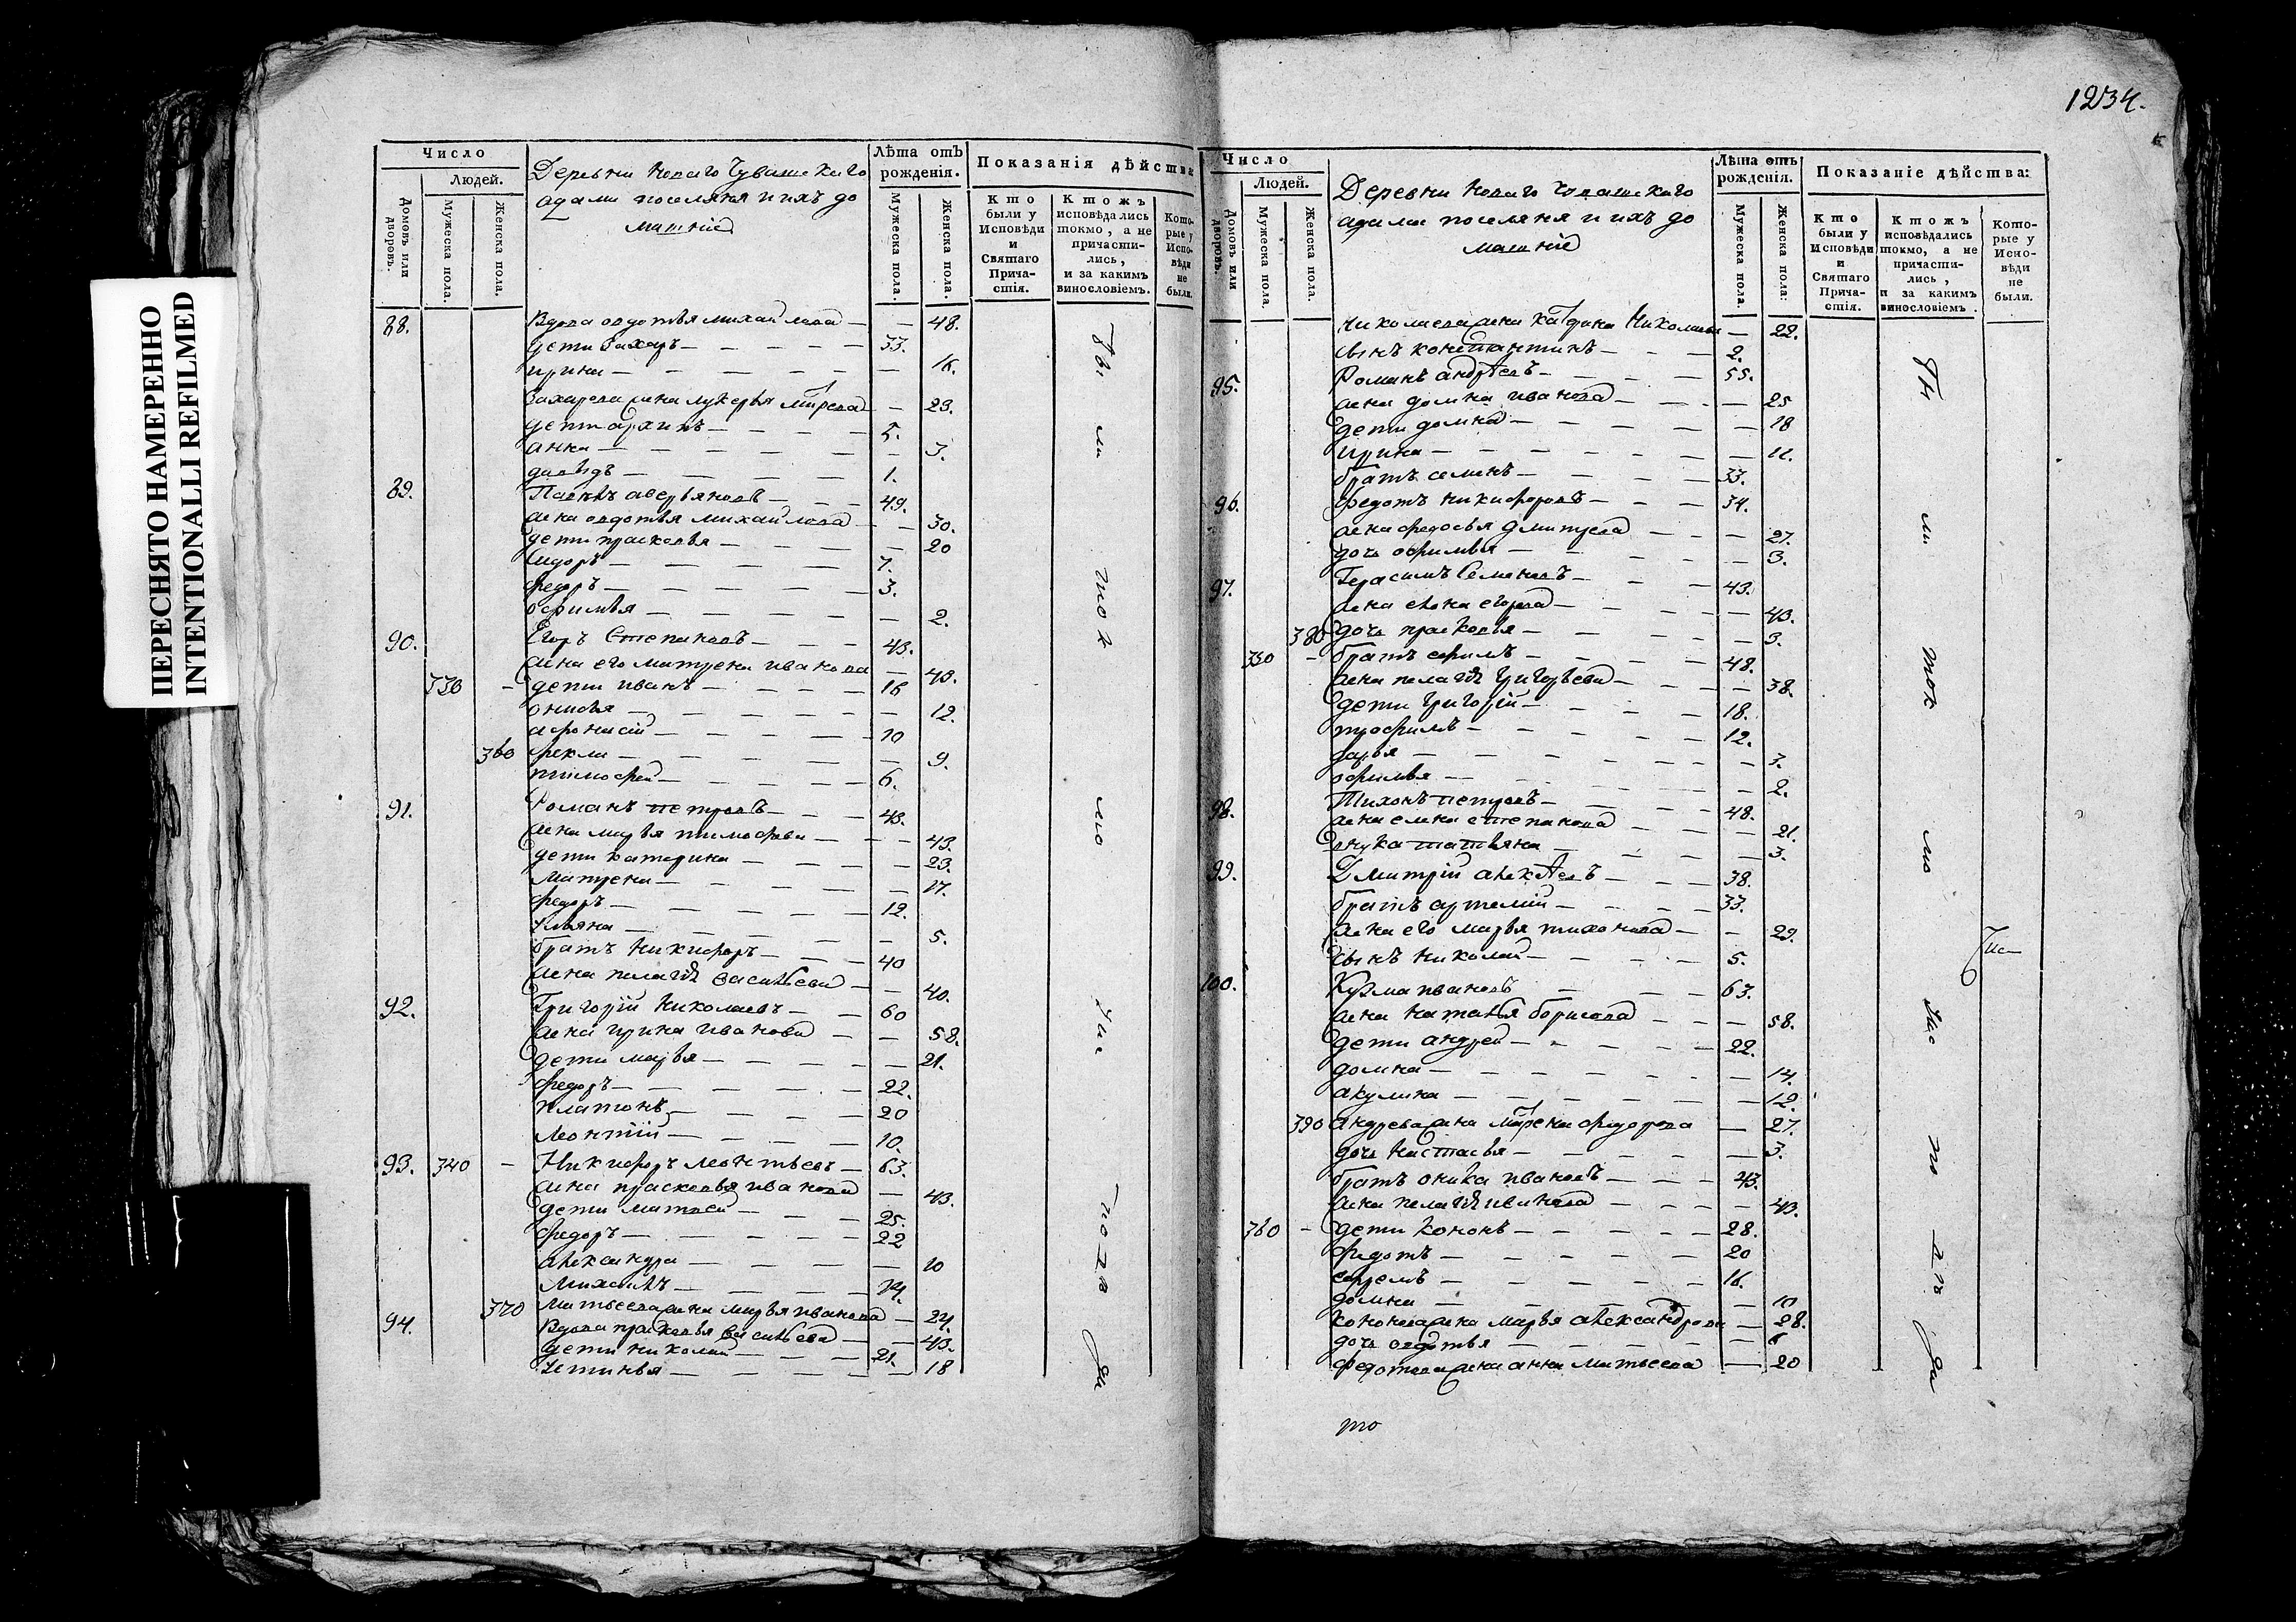 ПЕРЕСНЯТО НАМЕРЕННО
INTENTIONALLI REFILMED
1234.
Число
Людей.
Домовъ или дворовъ.
Мужеска пола.
Женска пола.
Деревни Новаго Чувашскаго
адами поселяня и ихъ до
машніе
Лѣта отъ рожденія.
Мужеска пола.
Женска пола.
Показанія дѣйства
Кто были у Исповѣди и Святаго Причастія.
Ктожъ исповѣдались токмо, а не причастились, и за какимъ винословіемъ.
Которые у Исповѣди не были.
88. Вдова овдотья михайлова — — 48.
дети Захаръ — 33.
ирина — — 16.
Захарова жена лукерья — 29.
дети архипъ —
анна — — 3.
давыдъ — 1.
89. Павелъ аверьяновъ — 49.
жена овдотья михайлова — — 30.
дети прасковья — — 20
Сидоръ — 7.
федоръ — 3.
офимья — — 2.
90. Егоръ Степановъ — 43.
жена его матрена иванова — 43.
330 - дети иванъ — 16
онисья — — 12.
афонасій — 10
360 фекла — — 9.
тимофей — 6.
91. Романъ петровъ — 43.
жена марья тимофева — — 43.
дети катерина — — 23.
Матрена — — 17.
федоръ — 12.
ульяна — — 5.
братъ Никифоръ — 40
жена пелагѣя васильева — — 40.
92. Григорій Николаевъ — 60
жена ирина иванова — — 58.
дети марья — — 21.
федоръ — 22.
платонъ — 20
леонтій — 10.
93. 340 - Никифоръ леонтьевъ — 63.
жена прасковья иванова — 43.
дети матвей — 25.
федоръ — 22
александра — — 10
михаилъ — 14.
370 матвеева жена марья иванова — 24.
94. Вдова прасковья васильева — — 43.
дети николай — 21.
Устинья — — 18
Число
Людей.
Домовъ или дворовъ.
Мужеска пола.
Женска пола.
Деревни Новаго Чувашскаго
адами поселяня и ихъ до
машніе
Лѣта отъ рожденія.
Мужеска пола.
Женска пола:
Показаніе дѣйства:
Кто были у Исповѣди и Святаго Причастія.
Ктожъ исповѣдались токмо, а не причастились, и за какимъ винословіемъ.
Которые у Исповѣди не были.
Николаева жена Николаева — 22.
сынъ константинъ — 2.
95. Романъ андреевъ — 55.
жена домна иванова — — 25
дети домна — — 18
ирина — — 11.
братъ семенъ — 33.
96. Федотъ никифоровъ — 34.
жена федосья дмитрева — — 27.
дочь офимья — — 3.
97. Герасимъ Семеновъ — 43.
жена елена егорова — — 43.
380 дочь прасковья — — 3.
350 - братъ ефимъ — 48.
жена пелагѣя григорьева — — 38.
дети григорій — 18.
трофимъ — 12.
дарья — — 7.
офимья — — 2.
98. Тихонъ петровъ — 48.
жена елена степанова — — 21.
внука татьяна — — 3.
99. Дмитрій алексеевъ — 38.
братъ артемій — 33.
жена его марья тихонова — — 29.
сынъ николай — 5.
100. Кузма ивановъ — 63.
жена наталья борисова — — 58.
дети андрей — 22.
домна — — 14.
акулина — — 12.
390 андреева жена федорова — 27.
дочь настасья — — 3.
братъ оника ивановъ — 43.
жена пелагѣя иванова — — 43.
360 - дети кононъ — 28.
федотъ — 20
ефремъ — 16.
домна — — 10
кононова жена марья александрова — 28.
дочь овдотья — — 6
федотова жена анна матвеева — 20
то